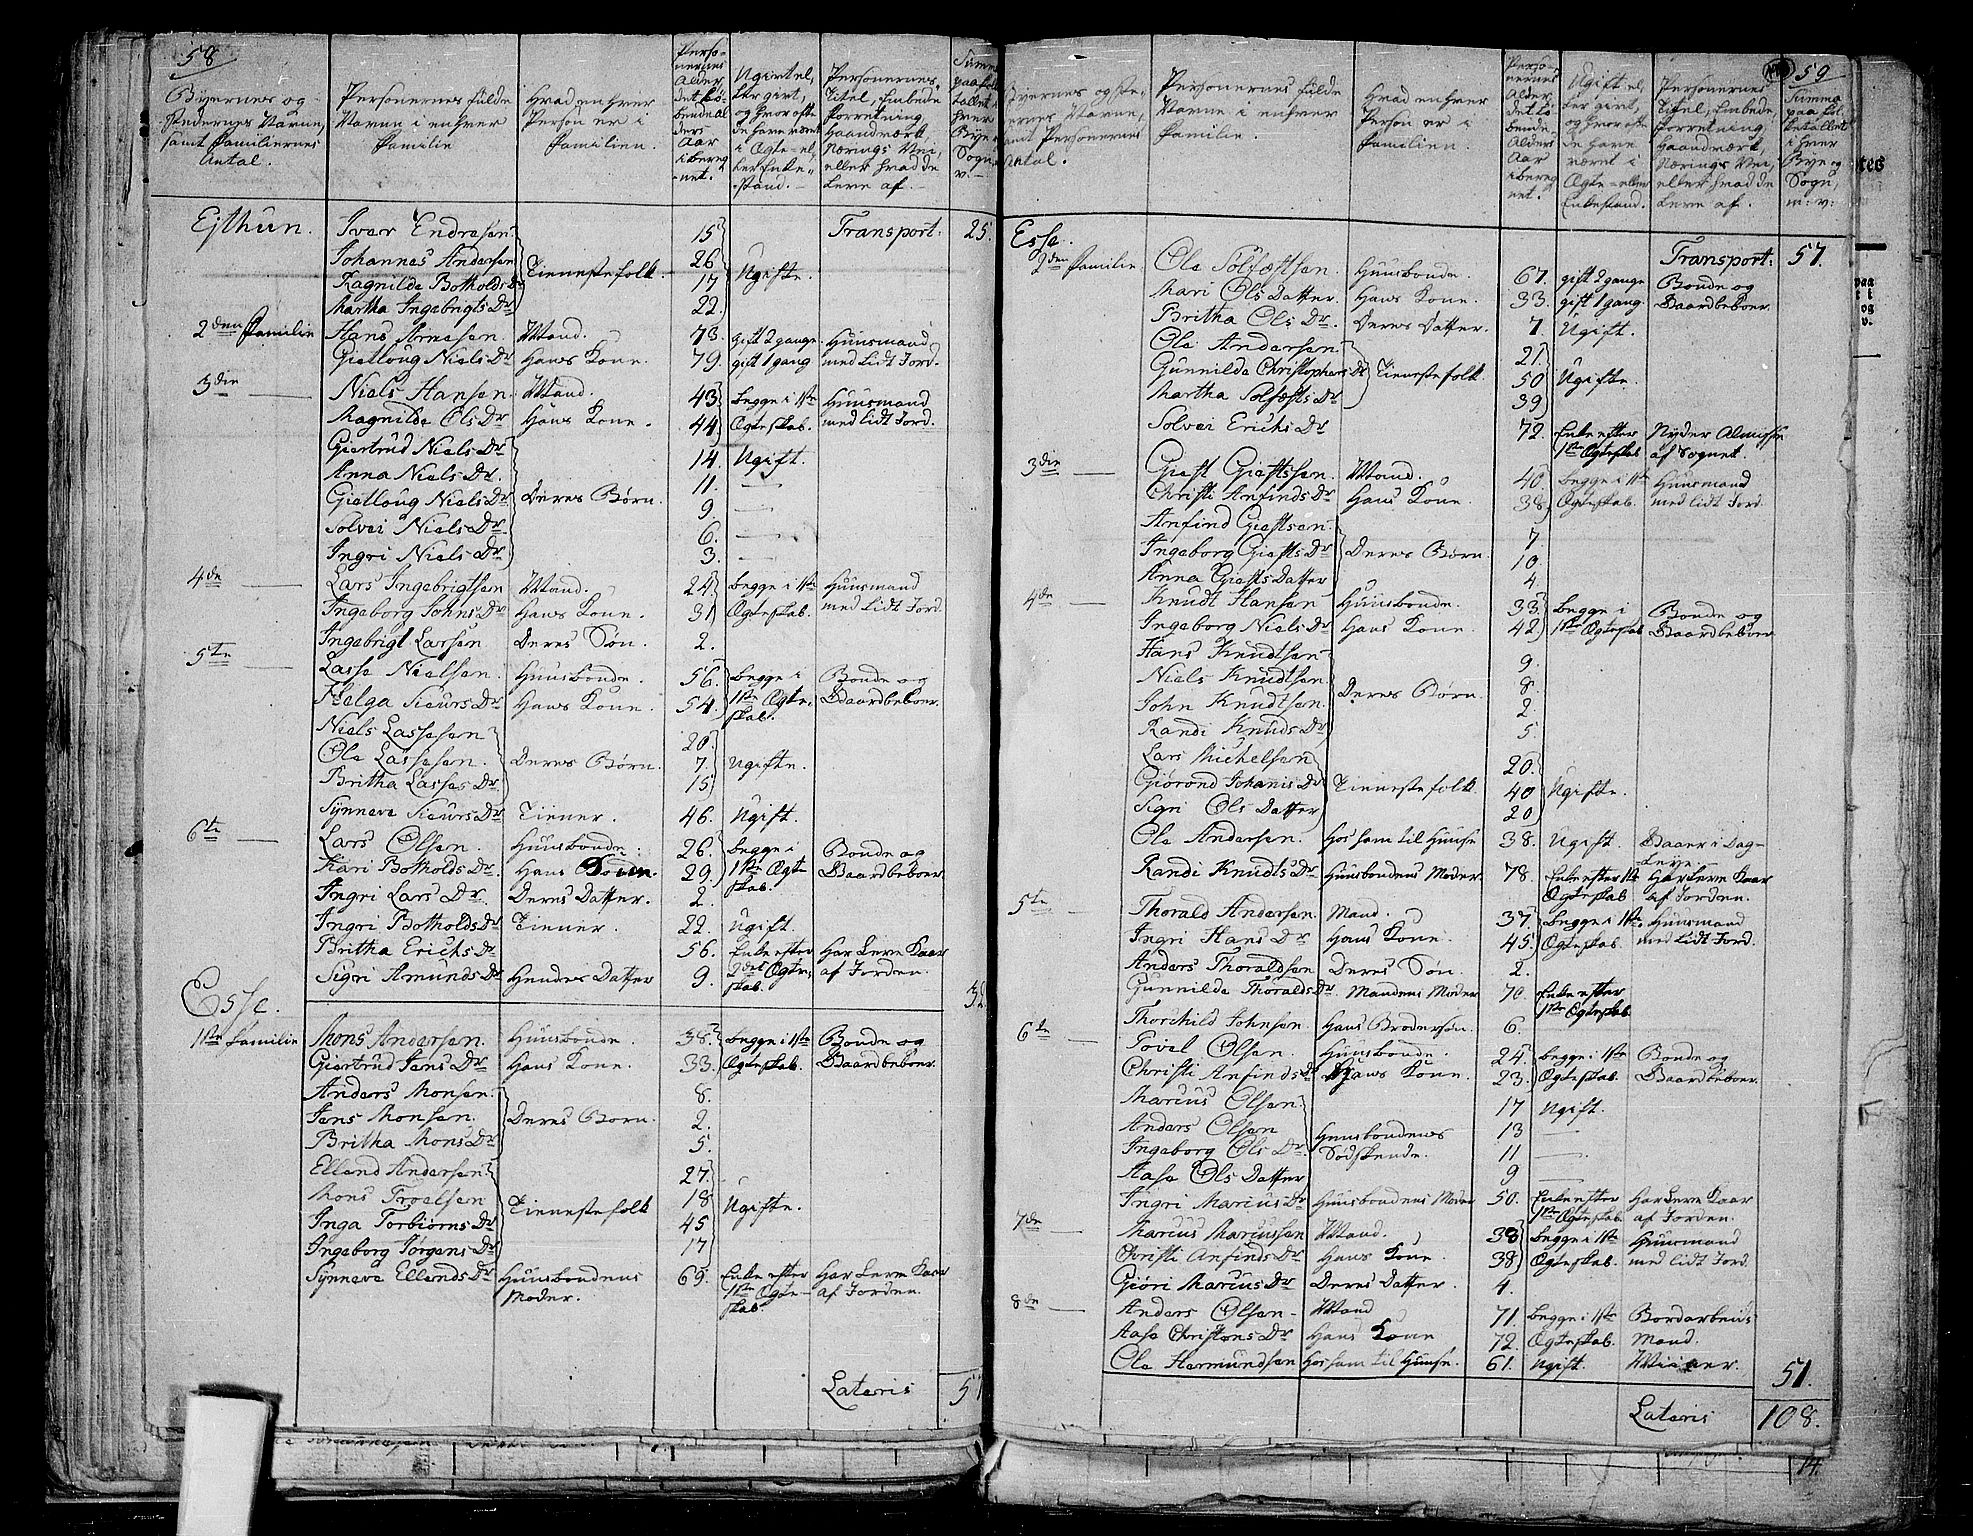 58
Byernes og Stedernes Navne, samt Familiernes Antal.
Personernes fulde Navne i enhver Familie
Hvad enhver Person er i Familien.
Personernes Alder det løbende Alders Aar iberegnet.
Ugivt eller givt, og hvor ofte de have været i Ægte- eller Enkestand.
Personernes Titel, Embede Forretning, Haandværk Nærings Vei, eller hvad de Leve af.
Ejthun.
Transport: 25.
Iver Endresen 15
Johannes Andersen 26
Ragnilde Botholds Dr Tienestefolk. 17 Ugifte.
Martha Ingebrigts Dr 22.
2den Familie Hans Arnesen Mand. 73. gift 2 gange Huusmand
Gietloug Niels Dr Hans Kone. 79. gift 1 gang med lidt Jord.
3die Niels Hansen Mand. 43 begge i 1ste Huusmand
Magnilde Ols Dr Hans Kone. 44. Ægteskab. med lidt Jord.
Giertrud Niels Dr 14. Ugift.
Anna Niels Dr. 11. —
Gietloug Niels Dr Deres Børn. 9. —
Solvei Niels Dr 6. —
Ingri Niels Dr 3. —
4de Lars Ingebrigtsen Mand. 24 begge i 1ste Huusmand
Ingeborg Johns Dr Hans Kone. 31 Ægteskab. med lidt Jord.
Ingebrigt Larsen Deres Søn. 2.
5te Lasse Nielsen Huusbonde. 56. begge i Bonde og
Helga Siurs Dr Hans Kone. 54. 1ste Ægteskab. Gaardbeboer.
Niels Lassesen 20.
Ole Lassesen. Deres Børn. 7. Ugifte.
Britha Lasses Dr 15
Synneve Siurs Dr Tiener. 46. Ugift.
6te Lars Olsen. Huusbonde. 26. begge i Bonde og
Kari Botholds Dr Hans 29. 1ste Ægteskab. Gaardbeboer.
Ingri Lars Dr. Deres Datter. 2.
Ingri Botholds Dr Tiener. 22. Ugift.
Britha Erichs Dr 56. Enke efter Har Leve Kaar
Sigri Amunds Dr Hendes Datter 9. 2det Ægteskab. af Jorden. 32
Esse.
1ste Familie Mons Andersen. Huusbonde. 38. begge i 1ste Bonde og
Giertrud Jens Dr Hans Kone. 33. Ægteskab. Gaardbeboer.
Anders Monsen. 8.
Jens Monsen. Deres Born. 2.
Britha Mons Dr 5.
Elland Andersen 27.
Mons Troelsen 18
Inga Torbiørns Dr Tienestefolk 45 Ugifte.
Ingeborg Jørgens Dr 17
Synneve Ellends Dr Huusbondens Moder. 69. Enke efter 1ste Ægteskab. Har Leve Kaar af Jorden.
Lateris 57
59
Personernes fulde Navne i enhver Familie.
Hvad enhver Person er i Familien.
Personernes Alder det løbende Alders Aar iberegnet.
Ugift eller givt, og hvor ofte de have været i Ægte- eller Enkestand.
Personernes Titel, Embede, Forretning, Haandværk, Nærings Vei, eller hvad de Leve af.
Summa paa Folketallet i hver Bye og Sogn, m: v:
Esse. Transport: 57.
2den Familie Ole Solfæstsen. Huusbonde. 67. gift 2 gange Bonde og
Mari Ols Datter. Hans Kone. 33. gift 1 gang. Gaardbeboer.
Britha Ols Dr. Deres Datter. 7. Ugift.
Ole Andersen 21.
Gunnilde Christophers Dr Tienestefolk. 50 Ugifte.
Martha Solfæsts Dr 39
Solvei Erichs Dr 72. Enke efter 1ste Ægteskab Nyder Almisse af Sognet.
3die Giæst Giæstsen Mand. 40. begge i 1ste Huusmand
Christi Anfinds Dr Hans Kone. 38. Ægteskab. med lidt Jord.
Anfind Giæstsen. 7.
Ingeborg Giæsts Dr Deres Børn. 10.
Anna Giæsts Datter 4.
4de Knudt Hansen Huusbonde. 33. begge i Bonde og
Ingeborg Niels Dr Hans Kone. 42. 1ste Ægteskab Gaardbeboer.
Hans Knudtsen 9.
Niels Knudtsen. 8.
John Knudtsen. Deres Born. 2
Randi Knuds Dr 5
Lars Michelsen 20.
Giørond Johanis Dr Tienestefolk 40 Ugifte.
Sigri Ols Datter 20
Ole Andersen. Hos ham til Huuse 38. Ugift. Gaaer i Dag-Leye.
Randi Knudts Dr Huusbondens Moder 78. Enke efter 1ste Ægteskab. Har Leve Kaar af Jorden.
5te Thorald Andersen Mand. 37. begge i 1ste Huusmand
Ingri Hans Dr Hans Kone. 45. Ægteskab. med lidt Jord.
Anders Thoraldsen Deres Søn. 2.
Gunnilde Thoralds Dr Mandens Moder 70. Enke efter 1ste Ægteskab.
Thorchild Johnsen Hans Brodersøn. 6.
6te Povel Olsen. Huusbonde. 24. begge i 1ste Bonde og
Christi Anfinds Dr Hans Kone. 23. Ægteskab. Gaardbeboer.
Marcus Olsen 17 Ugift.
Anders Olsen 13 —
Ingeborg Ols Dr. Huusbondens Sødskende. 11 —
Aase Ols Datter 9
Ingri Marcus Dr Huusbondens Moder 50. Enke efter 1ste Ægteskab. Har Leve Kaar af Jorden.
7de Marcus Marcussen Mand. 38 begge i 1ste Huusmand
Christi Anfinds Dr Hans Kone. 38 Ægteskab. med lidt Jord.
Giøri Marcus Dr Deres Datter. 4.
8de Anders Olsen Mand 71. begge i 1ste Bordarbeids
Aase Christens Dr Hans Kone 72. Ægteskab. Mand.
Ole Hermundsen Hos ham til Huuse. 61. Ugift. 51.
Lateris 108.
14.